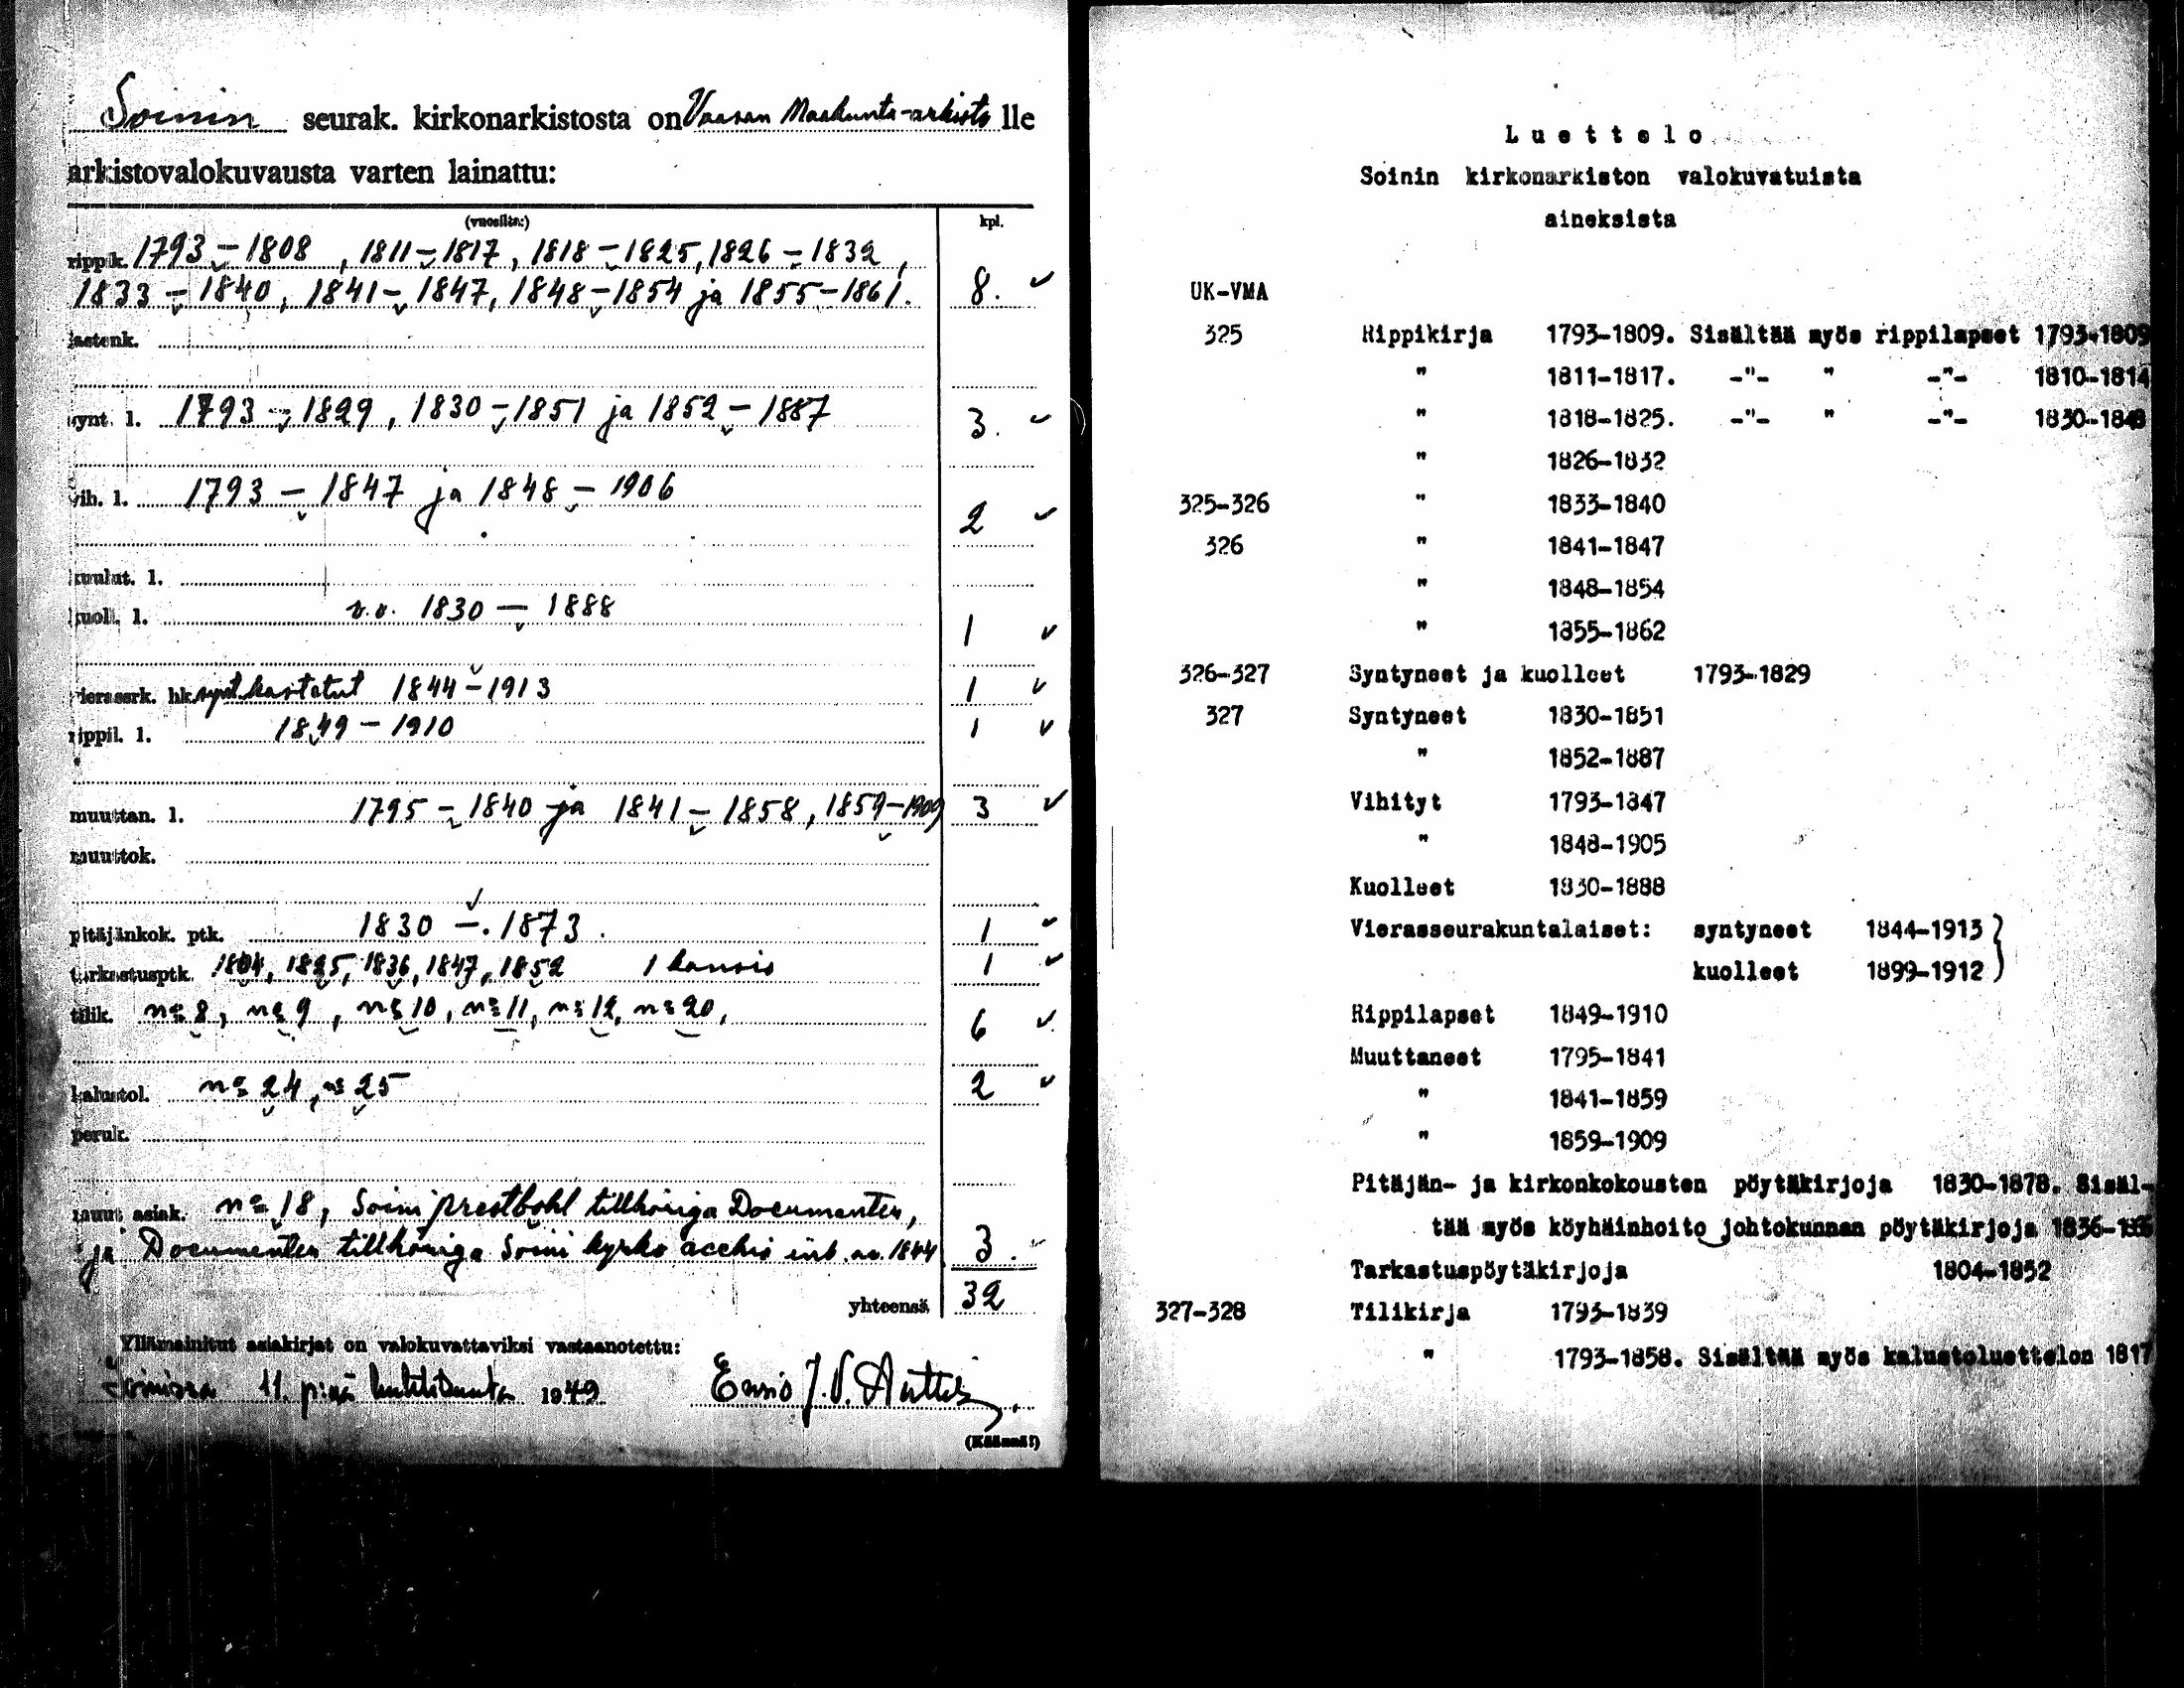 Soinin seurak. kirkonarkistosta on Vaasan Maakunta-arkisto lle
arkistovalokuvausta varten lainattu:
(vuosilta:) kpl.
rippik. 1793 – 1808, 1811 – 1817, 1818 – 1825, 1826 – 1832,
1833 – 1840, 1841 – 1847, 1848 – 1854 ja 1855 – 1861. 8. ✓
lastenk.
synt. l. 1793 – 1829, 1830 – 1851 ja 1852 – 1887 3. ✓
vih. l. 1793 – 1847 ja 1848 – 1906 2 ✓
kuulut. l.
kuoll. l. v.v. 1830 – 1888 1 ✓
vierassrk. hk. synt. kastetut 1844 – 1913 1 ✓
rippil. l. 1849 – 1910 1 ✓
muuttan. l. 1795 – 1840 ja 1841 – 1858, 1859 – 1909 3 ✓
muuttok.
pitäjänkok. ptk. 1830 – 1873. 1 ✓
tarkastusptk. 1804, 1825, 1836, 1847, 1852 1 kansio 1 ✓
tilik. no 8, no 9, no 10, no 11, no 12, no 20, 6 ✓
kalustol. no 24, no 25 2 ✓
peruk.
muut asiak. no 18, Soini prestbohl tillhöriga Documenter,
ja Documenter tillhöriga Soini kyrko 1844 3.
yhteensä 32
Yllämainitut asiakirjat on valokuvattaviksi vastaanotettu:
Soinissa 11. p:nä huhtikuuta 1949 Ensio J.V.
(Käännä!)
Luettelo
Soinin kirkonarkiston valokuvatuista
aineksista
UK-VMA
325 Rippikirja 1793-1809. Sisältää myös rippilapset 1793-1809
" 1811-1817. -"- " -"- 1810-1814
" 1818-1825. -"- " -"- 1830-1848
" 1826-1832
325-326 " 1833-1840
326 " 1841-1847
" 1848-1854
" 1855-1862
326-327 Syntyneet ja kuolleet 1793-1829
327 Syntyneet 1830-1851
" 1852-1887
Vihityt 1793-1847
" 1848-1905
Kuolleet 1830-1888
Vierasseurakuntalaiset: syntyneet 1844-1913
kuolleet 1899-1912
Rippilapset 1849-1910
Muuttaneet 1795-1841
" 1841-1859
" 1859-1909
Pitäjän- ja kirkonkokousten pöytäkirjoja 1830-1878. Sisäl-
tää myös köyhäinhoito johtokunnan pöytäkirjoja 1836-
Tarkastuspöytäkirjoja 1804-1852
327-328 Tilikirja 1793-1839
" 1793-1858. Sisältää myös kalustoluettelon 1817